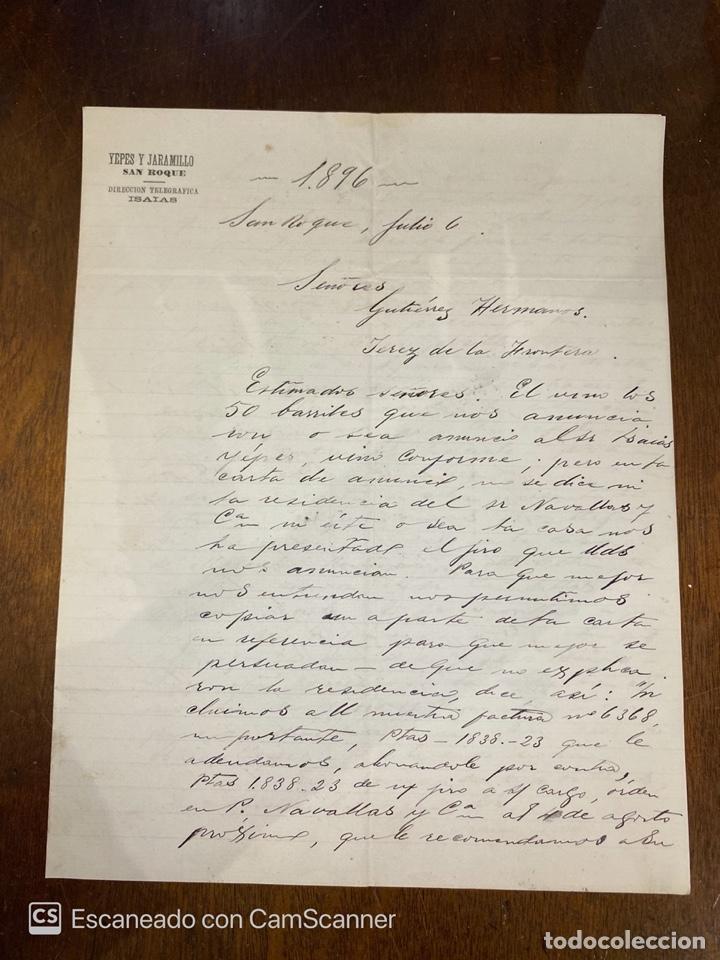 YEPES Y JARAMILLO
SAN ROQUE
DIRECCION TELEGRAFICA
ISAIAS
— 1.896 —
San Roque, Julio 6.
Señores
Gutiérrez Hermanos.
Jerez de la Frontera.
Estimados señores. El vino los
50 barriles que nos anuncia
ron o sea anuncio al Sr Isaias
Yépes, vino conforme; pero en la
carta de anuncio, no se dice ni
la residencia del sr Navallas y
Cª ni éste o sea la casa nos
ha presentado el jiro que Uds
nos anuncian. Para que mejor
nos entiendan nos permitimos
copiar una parte de la carta
en referencia para que mejor se
persuadan — de que no explica
ron la residencia, dice así: "In
cluimos a U nuestra factura nº 6368,
importante, Ptas — 1838.-23 que le
adeudamos, abonandole por contra,
Ptas 1.838-23 de n/ jiro a s/ cargo, órden
en P. Navallas y Cª al 4 de agosto
próximo, que le recomendamos a su
CS Escaneado con CamScanner
todocoleccion